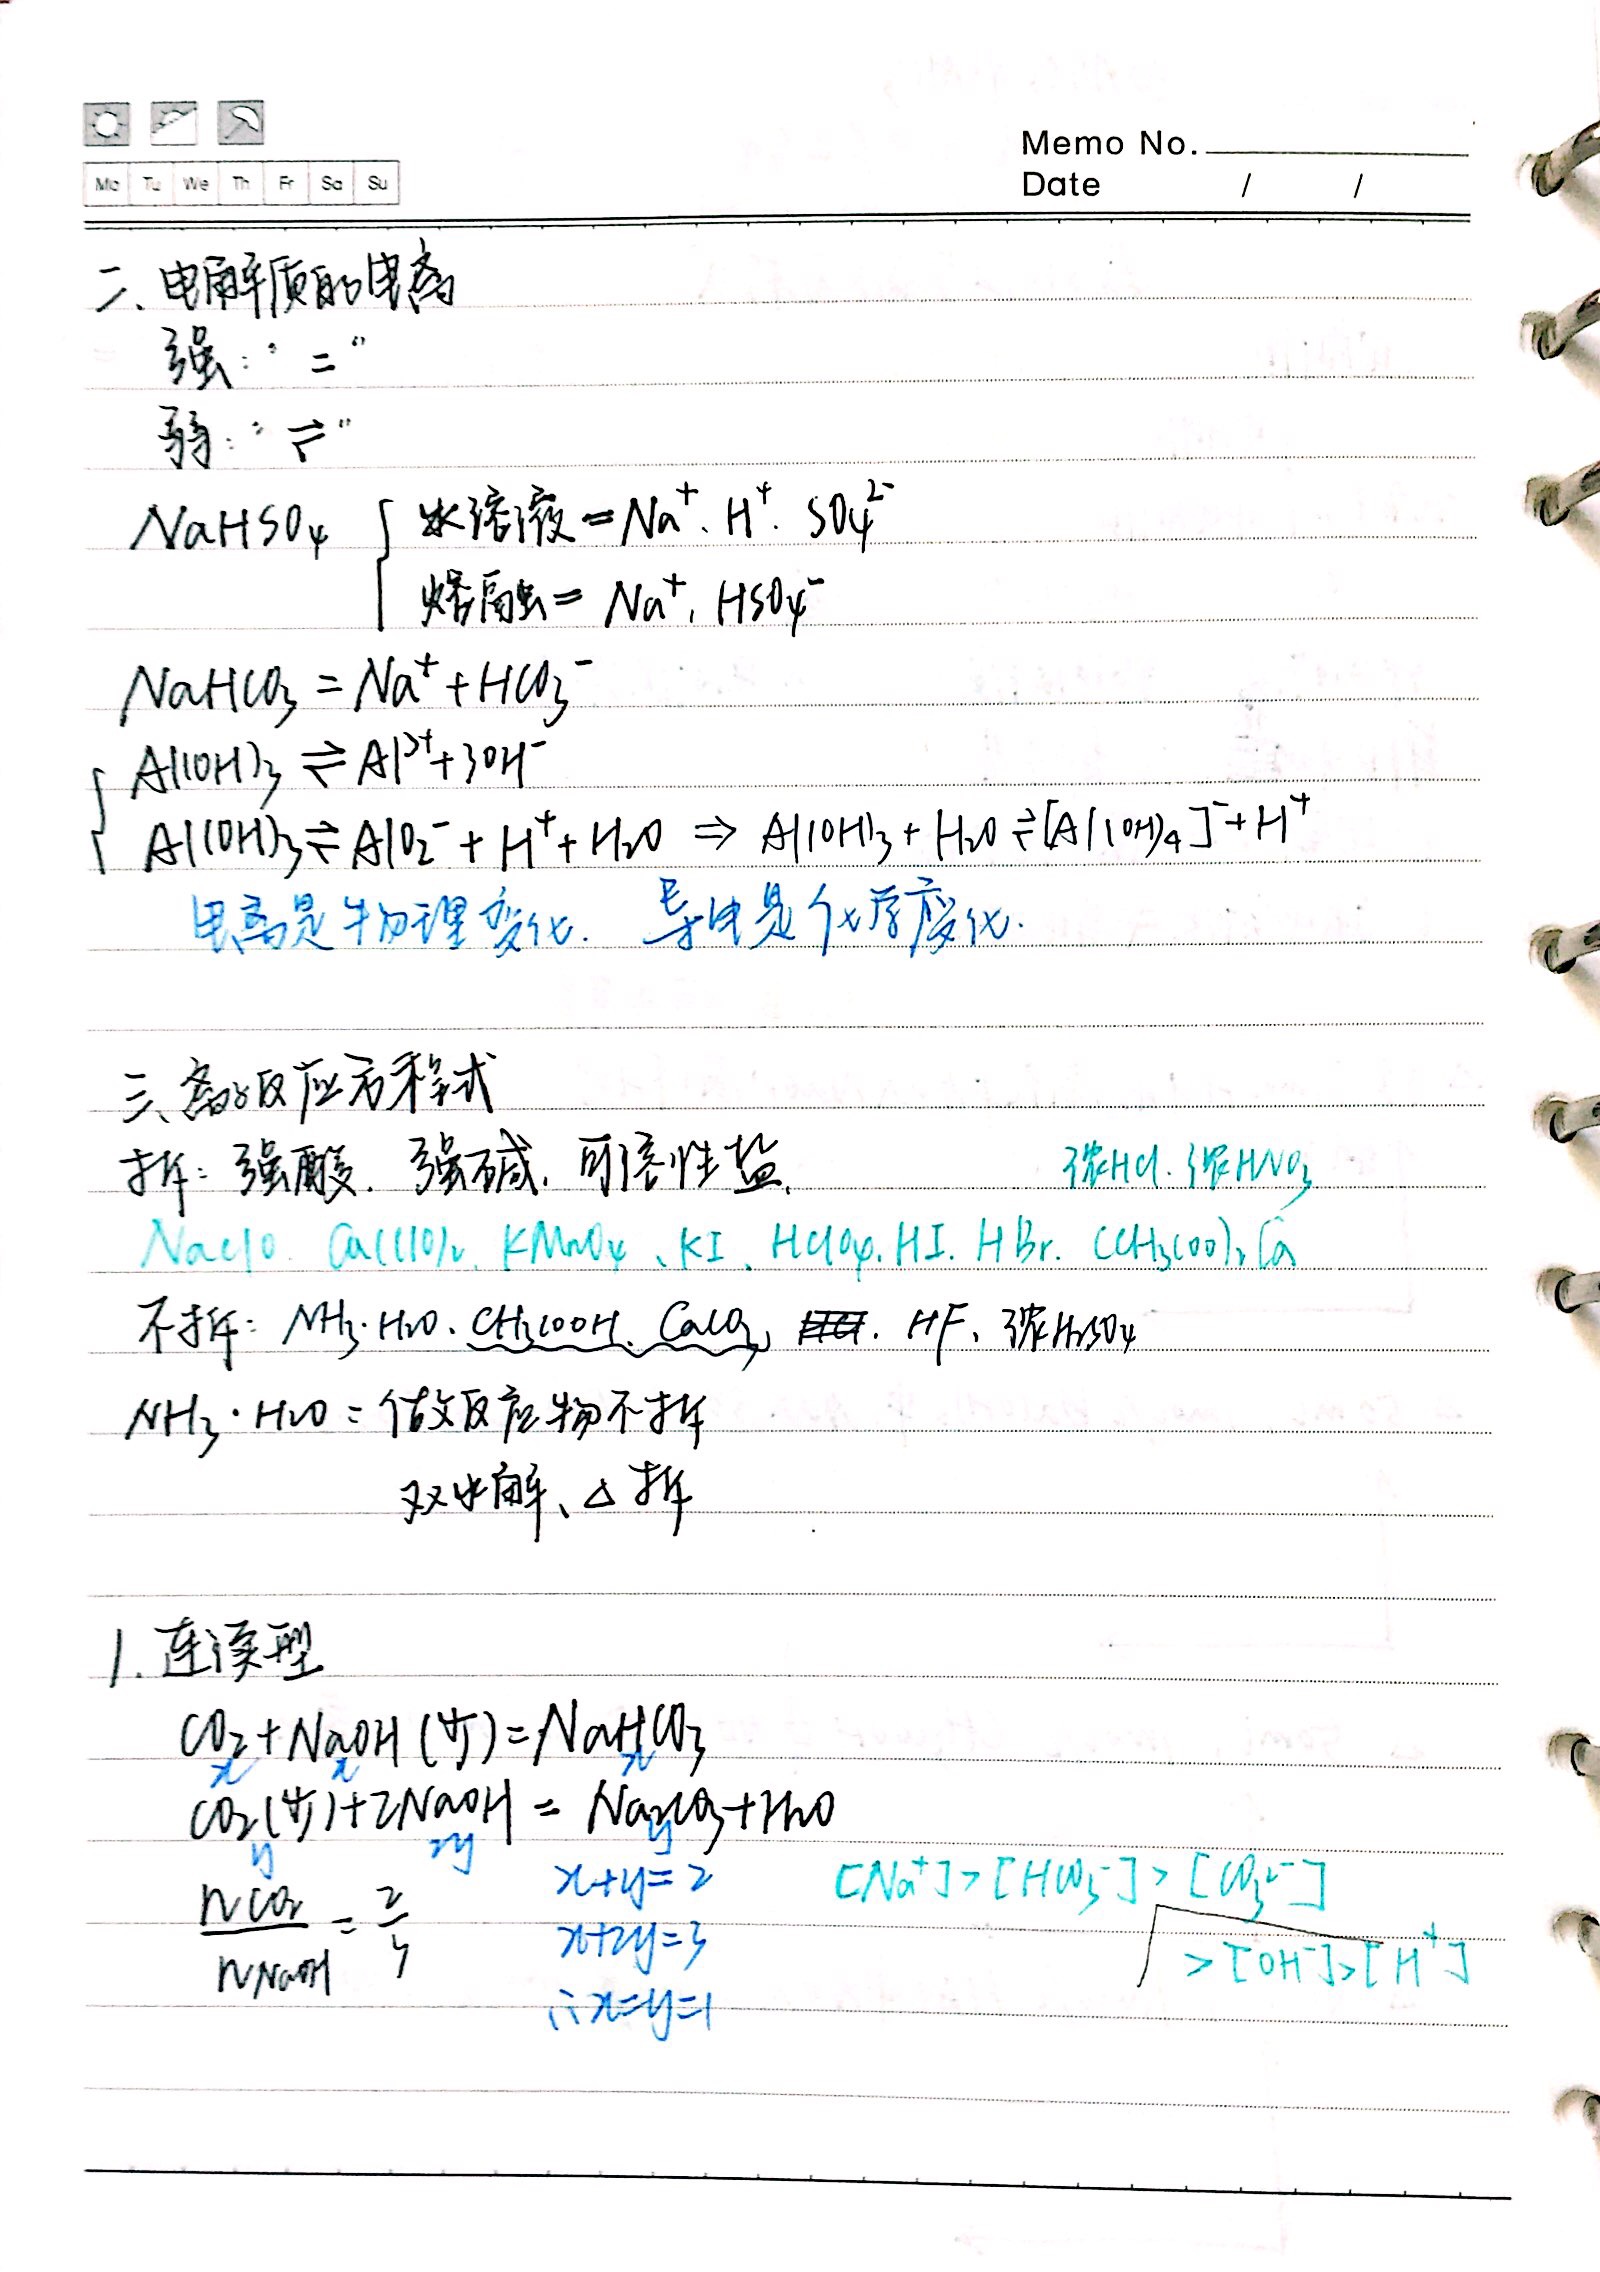 Memo No.
Mo Tu We Th Fr Sa Su
Date / /
二、电解质的电离
强：“ = ”
弱：“ ⇌ ”
NaHSO₄ { 水溶液 = Na⁺、H⁺、SO₄²⁻
熔融 = Na⁺、HSO₄⁻
NaHCO₃ = Na⁺ + HCO₃⁻
{ Al(OH)₃ ⇌ Al³⁺ + 3OH⁻
Al(OH)₃ ⇌ AlO₂⁻ + H⁺ + H₂O ⇒ Al(OH)₃ + H₂O ⇌ [Al(OH)₄]⁻ + H⁺
电离是物理变化. 导电是化学变化.
三、离子反应方程式
拆：强酸、强碱、可溶性盐、 浓HCl、浓HNO₃
NaClO、Ca(ClO)₂、KMnO₄、KI、HClO₄、HI、HBr、(CH₃COO)₂Ca
不拆：NH₃·H₂O、CH₃COOH、CaCO₃、 HF、浓H₂SO₄
NH₃·H₂O：做反应物不拆
双水解、△拆
1. 连续型
CO₂ + NaOH (少) = NaHCO₃
x x x
CO₂(少) + 2NaOH = Na₂CO₃ + H₂O
y 2y y
nCO₂ / nNaOH = 2/3
x+y=2
x+2y=3
∴x=y=1
[Na⁺] > [HCO₃⁻] > [CO₃²⁻]
> [OH⁻] > [H⁺]